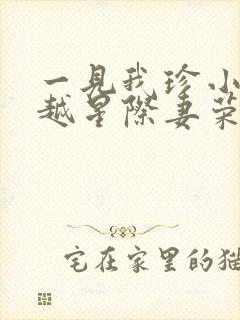 一見我珍小
越星際妻荣
宅在家里的猫